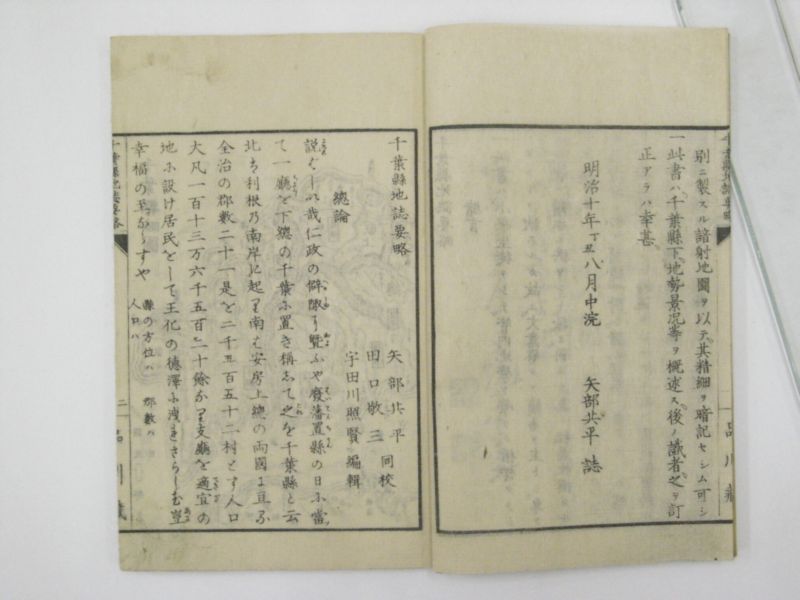 別ニ製スル諳射地圖ヲ以テ其精細ヲ暗記セシム可シ
一此書ハ千葉縣下地勢景況等ヲ概述ス後ノ識者之ヲ訂
正アラハ幸甚
明治十年丁丑八月中浣
矢部共平誌
千葉縣地誌要略
矢部共平
田口敬三 同校
宇田川照賢 編輯
總論
説ばしい哉仁政の僻陬に覃ふや廢藩置縣の日ふ當
て一廳を下總の千葉ふ置き稱して之を千葉縣と云
北は利根乃南岸に起り南は安房上總の両國に亘る
全治の郡數二十一是を二千五百五十二村とす人口
大凡一百十三万六千五百二十餘なり支廳を適宜の
地ふ設け居民をして王化の德澤ふ洩れさらしむ豈
幸福の至ならすや
縣の方位ハ
郡數ハ
人口ハ
千葉縣地誌要略
二
品川藏